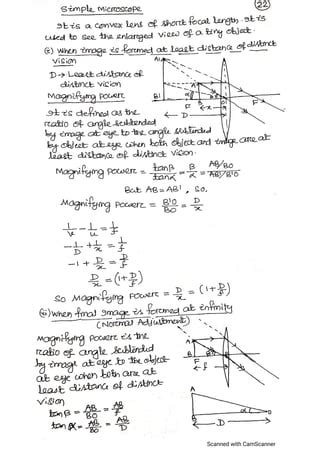 Simple Microscope
(22)
It is a convex lens of short focal length. It is
used to see the enlarged view of a tiny object.
(i) When image is formed at least distance of distinct
vision
D → Least distance of
distinct vision
Magnifying power
It is defined as the
ratio of angle subtended
by image at eye to the angle subtended
by object at eye when both object and image are at
least distance of distinct vision.
Magnifying power = tanβ/tanα = β/α = AB/BO / AB'/B'O
But AB = AB', So,
Magnifying power = B'O/BO = D/x
1/v - 1/u = 1/f
-1/D + 1/x = 1/f
-1 + D/x = D/f
D/x = (1 + D/f)
So Magnifying power = D/x = (1 + D/f)
(ii) When final Image is formed at infinity
(Normal Adjustment)
Magnifying power is the
ratio of angle subtended
by image at eye to the object
at eye when both are at
least distance of distinct
vision
tanβ = AB/BO = AB/f
tanα = AB/BO = AB/D
Scanned with CamScanner